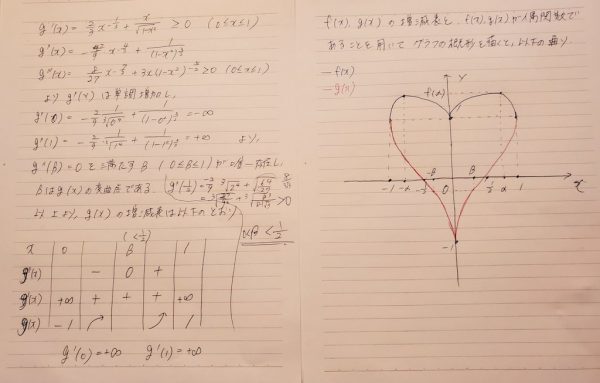 g'(x) = 2/3 x^{-1/3} + x/√(1-x²) > 0 (0≤x≤1)
g''(x) = -2/9 x^{-4/3} + 1/(1-x²)^{3/2}
g'''(x) = 8/27 x^{-7/3} + 3x(1-x²)^{-5/2} ≥ 0 (0≤x≤1)
より g''(x) は単調増加し,
g''(0) = -2/9 1/∛0⁴ + 1/(1-0²)^{3/2} = -∞
g''(1) = -2/9 1/∛1⁴ + 1/(1-1²)^{3/2} = +∞ より,
g''(β) = 0 を満たす β (0≤β≤1) が唯一存在し,
βはg(x)の変曲点である.
以上より, g(x) の増減表は以下のとおり
0<β<1/2
(<1/2)
x 0 β 1
g''(x) - 0 +
g'(x) +∞ + + + +∞
g(x) -1
g'(0)=+∞ g'(1)=+∞
f(x), g(x) の増減表と, f(x), g(x) が偶関数で
あることを用いてグラフの概形を描くと, 以下の通り.
- f(x)
- g(x)
y
f(α)
-β β
-1 -α -1/2 0 1/2 α 1 x
-1